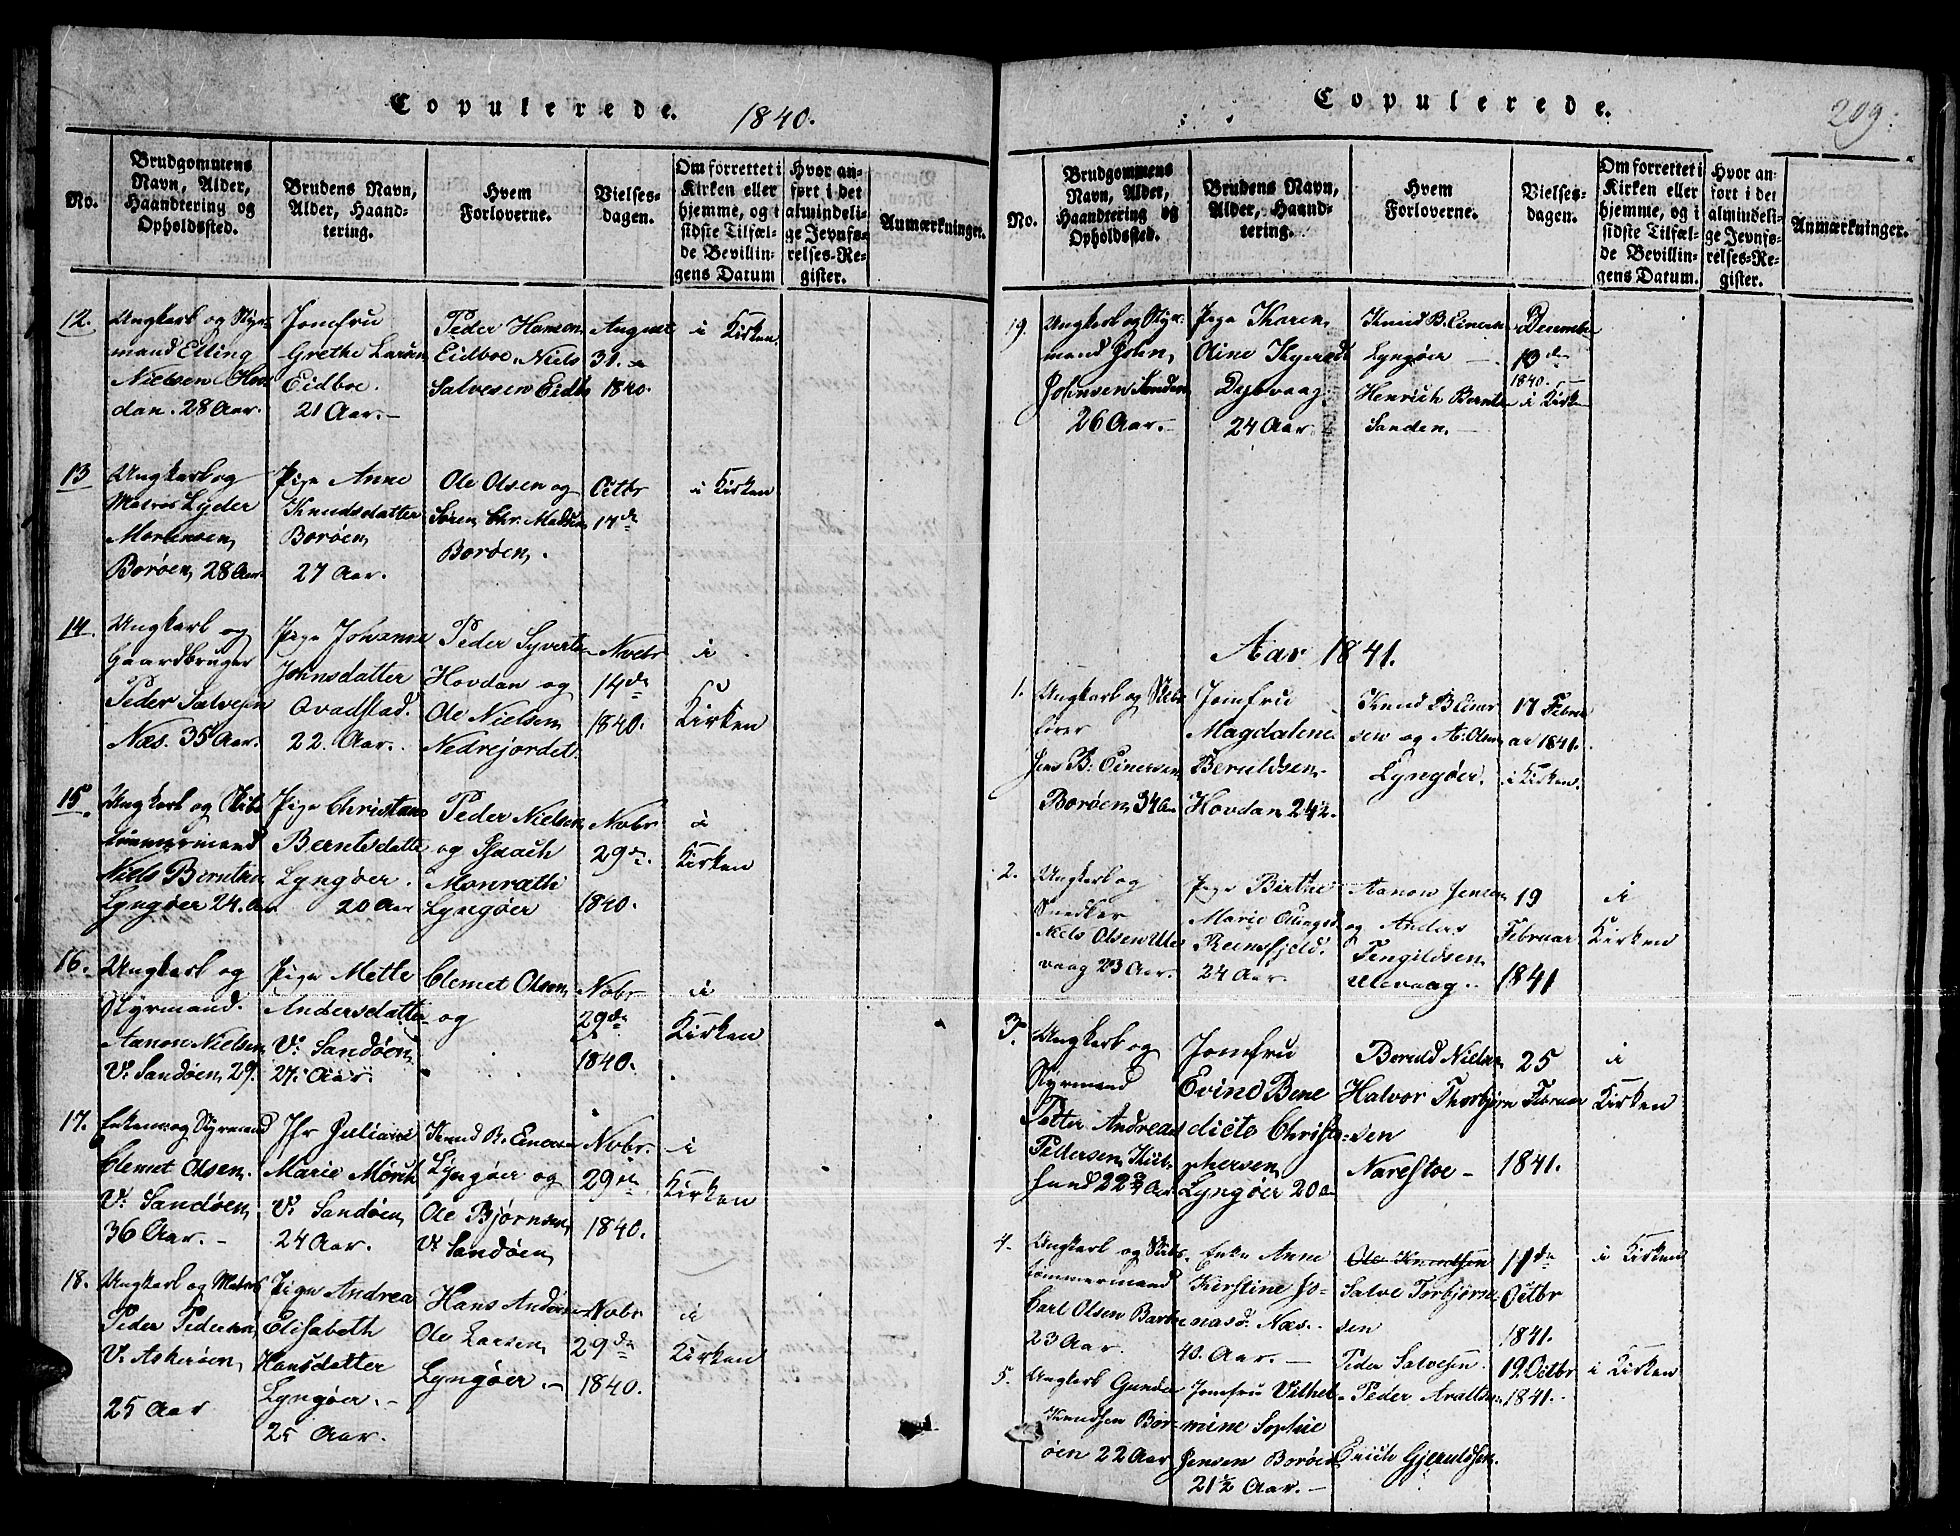 Copulerede. 1840.
No.
Brudgommens Navn, Alder, Haandtering og Opholdssted.
Brudens Navn, Alder, Haandtering.
Hvem Forloverne.
Vielsesdagen.
Om forrettet i Kirken eller hjemme, og i sidste Tilfælde Bevillingens Datum
Hvor anført i det almindelige Jevnførelses-Register.
Anmærkninger.
12.
Ungkarl og Styr-
mand Elling
Nielsen Hov-
dan. 28 Aar.
Jomfru
Grethe Larsen
Eidboe.
21 Aar. –
Peder Hansen
Eidboe, Niels
Salvesen Eidb
August
31.
1840.
i Kirken
13
Ungkarl og
Matros Lyder
Mortensen,
Borøen, 28 Aar.
Pige Anne
Knudsdatter
Borøen,
27 Aar.
Ole Olsen og
Søren Chr. Madsen
Borøen.
Octbr
17de
i Kirken
14.
Ungkarl og
Gaardbruger
Peder Salvesen
Næs. 35 Aar.
Pige Johanne
Johnsdatter
Qvadstad.
22. Aar.
Peder Syverts
Hovdan og
Ole Nielsen,
Nedrejordet.
Novbr
14de
1840.
i
Kirken
15.
Ungkarl og Skibs
tømmermand
Niels Berntsen
Lyngøer 24. Aar
Pige Christiane
Berntsdatte
Lyngøer.
20 Aar
Peder Nielsen,
og Isaach
Monrath
Lyngøer
Novbr
29de
1840.
i
Kirken
16.
Ungkarl og
Styrmand.
Aanon Nielsen,
V. Sandøen, 29.
Pige Mette
Andersdatte
V. Sandøen,
27. Aar.
Clemet Olsen,
og
Nobr
29de
1840.
i
Kirken
17.
Enkem. og Styrmand
Clemet Olsen.
V. Sandøen,
36 Aar. –
Jfr Juliane
Marie Mörch
V. Sandøen,
24 Aar.
Knud B. Einersen
Lyngøer og
Ole Bjørnsen,
V. Sandøen,
Novbr.
29de
1840.
i
Kirken
18.
Ungkarl og Matros
Peder Pedersen,
V. Askerøen,
25 Aar
Pige Andrea
Elisabeth
Hansdatter
Lyngøer. –
25 Aar.
Hans Andersen
Ole Larsen,
Lyngøer. –
Novbr
29de
1840.
i
Kirken
Copulerede.
209.
No.
Brudgommens Navn, Alder, Haandtering og Opholdssted.
Brudens Navn, Alder, Haandtering.
Hvem Forloverne.
Vielsesdagen.
Om forrettet i Kirken eller hjemme, og i sidste Tilfælde Bevillingens Datum.
Hvor anført i det almindelige Jevnførelses-Register.
Anmærkninger.
19.
Ungkarl og Styr-
mand John,
Johnsen Sanden
26 Aar. –
Pige Karen,
Oline
Dypvaag
24 Aar
Knud B. Einersen
Lyngøer –
Henrich Bernts
Sanden. –
December
13de
1840. –
i Kirken
Aar 1841.
1.
Ungkarl og Skibs
fører
Jens B. Einersen,
Borøen, 34 Aar
Jomfru
Magdalene
Beruldsen –
Hovdan 24½.
Knud B Einer
sen og A. Olsen
Lyngøer.
17 Febru
ar 1841.
i Kirken.
2.
Ungkarl og
Snedker
Niels Olsen Ule
vaag 23 Aar.
Pige Birthe
Marie Ellingsd.
Reensfjeld.
24 Aar.
Aanon Jensen
og Anders
Tengildsen
Ulevaag.
19
Februar
1841
i
Kirken
3.
Ungkarl og
Styrmand
Petter Andreas
Pedersen, Kil-
sund 22¾ Aar.
Jomfru
Evind Bene
dicte Christo-
phersen,
Lyngøer 20 Aar
Beruld Nielsen
Halvor Thorbjørn
sen
Narestoe –
25
Februar
1841.
i
Kirken
4.
Ungkarl og Skibs-
tømmermand
Carl Olsen
23 Aar.
Enke Anne
Kirstine Jo-
nasd. Næs.
40. Aar. –
Ole Knudsen
Salve Torbjørn
sen
Peder Salvesen.
11de
Octbr
1841.
i Kirken
5.
Ungkarl Gunder
Knudsen Bor-
øen 22 Aar
Jomfru Vilhel-
mine Sophie
Jensen Borøen
21½ Aar. –
Peder Araltsen,
Erich Gjeruldsen.
19. Octbr
1841.
i Kirken